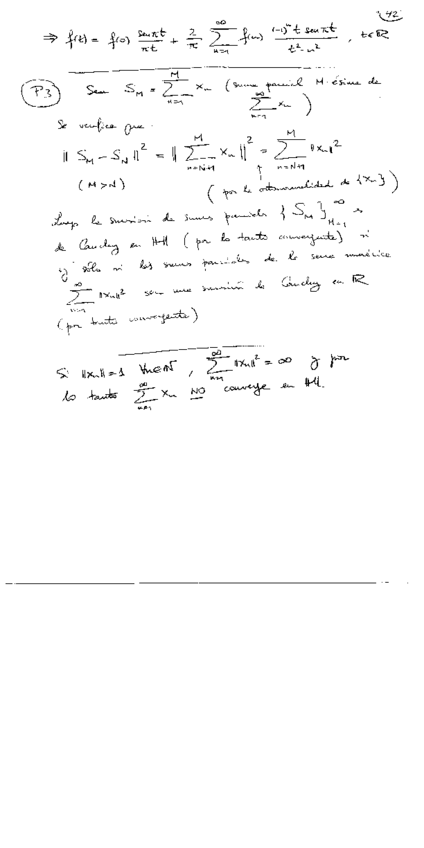 42
⇒ f(t) = f(0) sen πt / πt + 2/π ∑_{n=1}^{∞} f(n) (-1)^n t sen πt / t² - n² , t ∈ ℝ
P3 Sean S_M = ∑_{n=1}^{M} x_n (suma parcial M-ésima de ∑_{n=1}^{∞} x_n)
Se verifica que:
‖ S_M - S_N ‖² = ‖ ∑_{n=N+1}^{M} x_n ‖² = ∑_{n=N+1}^{M} ‖x_n‖²
(M > N) (por la ortonormalidad de {x_n})
Luego la sucesión de sumas parciales {S_M}_{M=1}^{∞} es
de Cauchy en ℍ (por lo tanto convergente) si
y sólo si las sumas parciales de la serie numérica
∑_{n=1}^{∞} ‖x_n‖² son una sucesión de Cauchy en ℝ
(por tanto convergente)
Si ‖x_n‖ = 1 ∀n∈ℕ , ∑_{n=1}^{∞} ‖x_n‖² = ∞ y por
lo tanto ∑_{n=1}^{∞} x_n NO converge en ℍ.